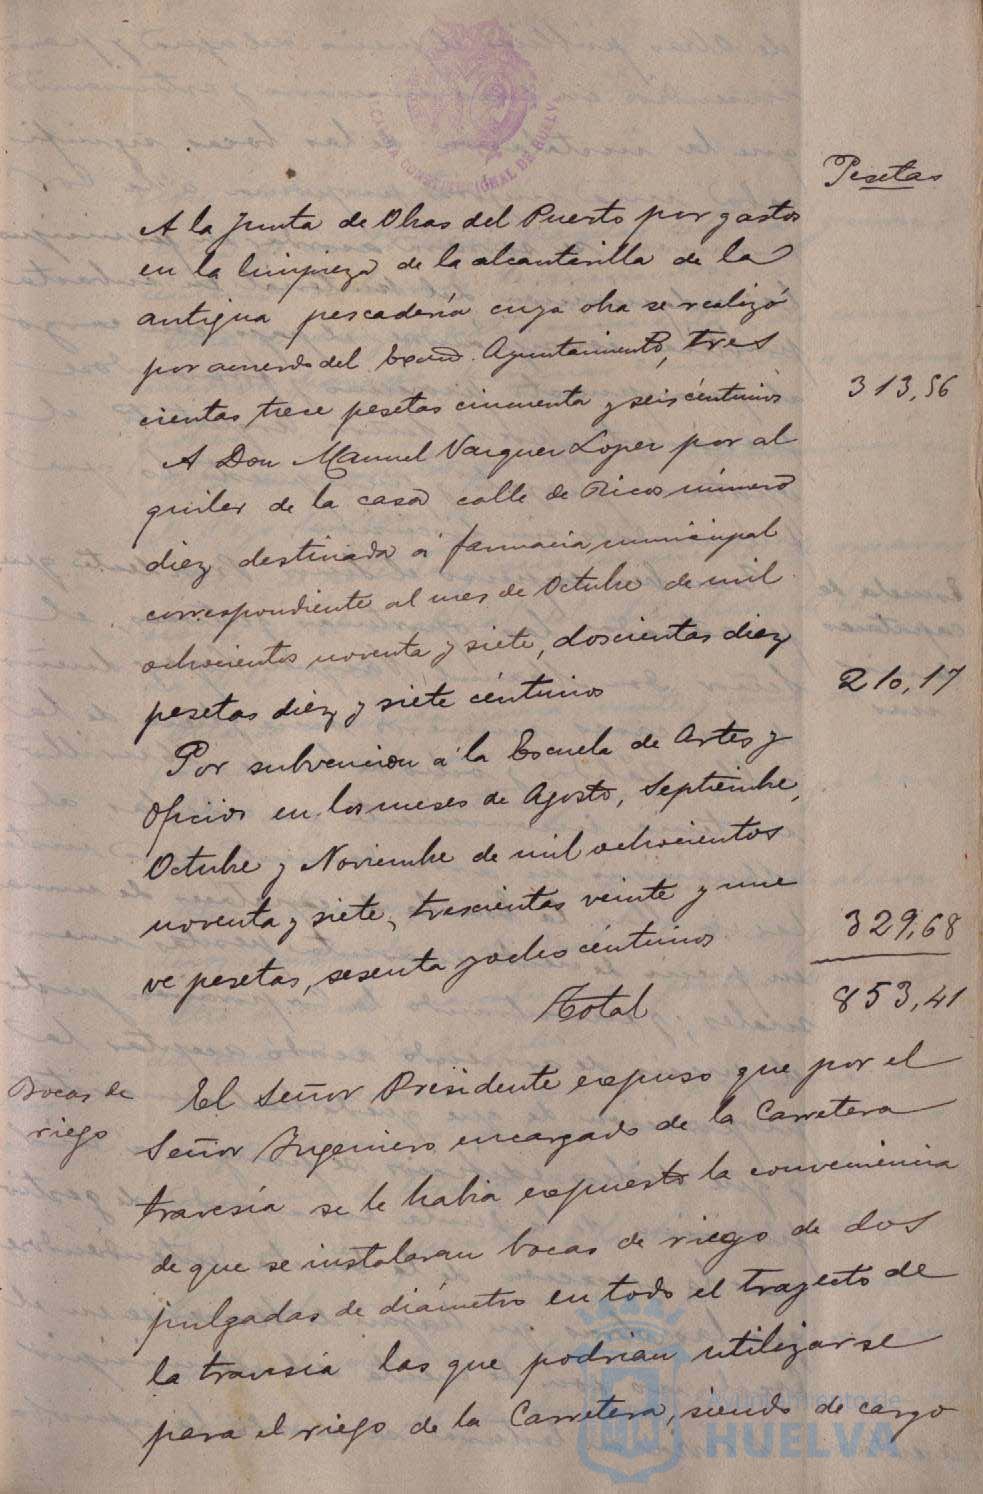 ALCALDIA CONSTITUCIONAL DE HUELVA
Pesetas
A la Junta de Obras del Puerto por gastos
en la limpieza de la alcantarilla de la
antigua pescadería cuya obra se realizó
por acuerdo del Excmo. Ayuntamiento, tres
cientas trece pesetas cincuenta y seis céntimos 313,56
A Don Manuel Vazquez Lopez por al
quiler de la casa calle de Ricos número
diez destinada á farmacia municipal
correspondiente al mes de Octubre de mil
ochocientos noventa y siete, doscientas diez
pesetas diez y siete céntimos 210,17
Por subvencion á la Escuela de Artes y
Oficios en los meses de Agosto, Septiembre,
Octubre y Noviembre de mil ochocientos
noventa y siete, trescientas veinte y nue
ve pesetas, sesenta y ocho céntimos 329,68
Total 853,41
Bocas de
riego
El Señor Presidente expuso que por el
Señor Ingeniero encargado de la Carretera
travesía se le habia expuesto la conveniencia
de que se instalaran bocas de riego de dos
pulgadas de diámetro en todo el trayecto de
la travesia las que podrian utilizarse
para el riego de la Carretera, siendo de cargo
Ayuntamiento de
HUELVA